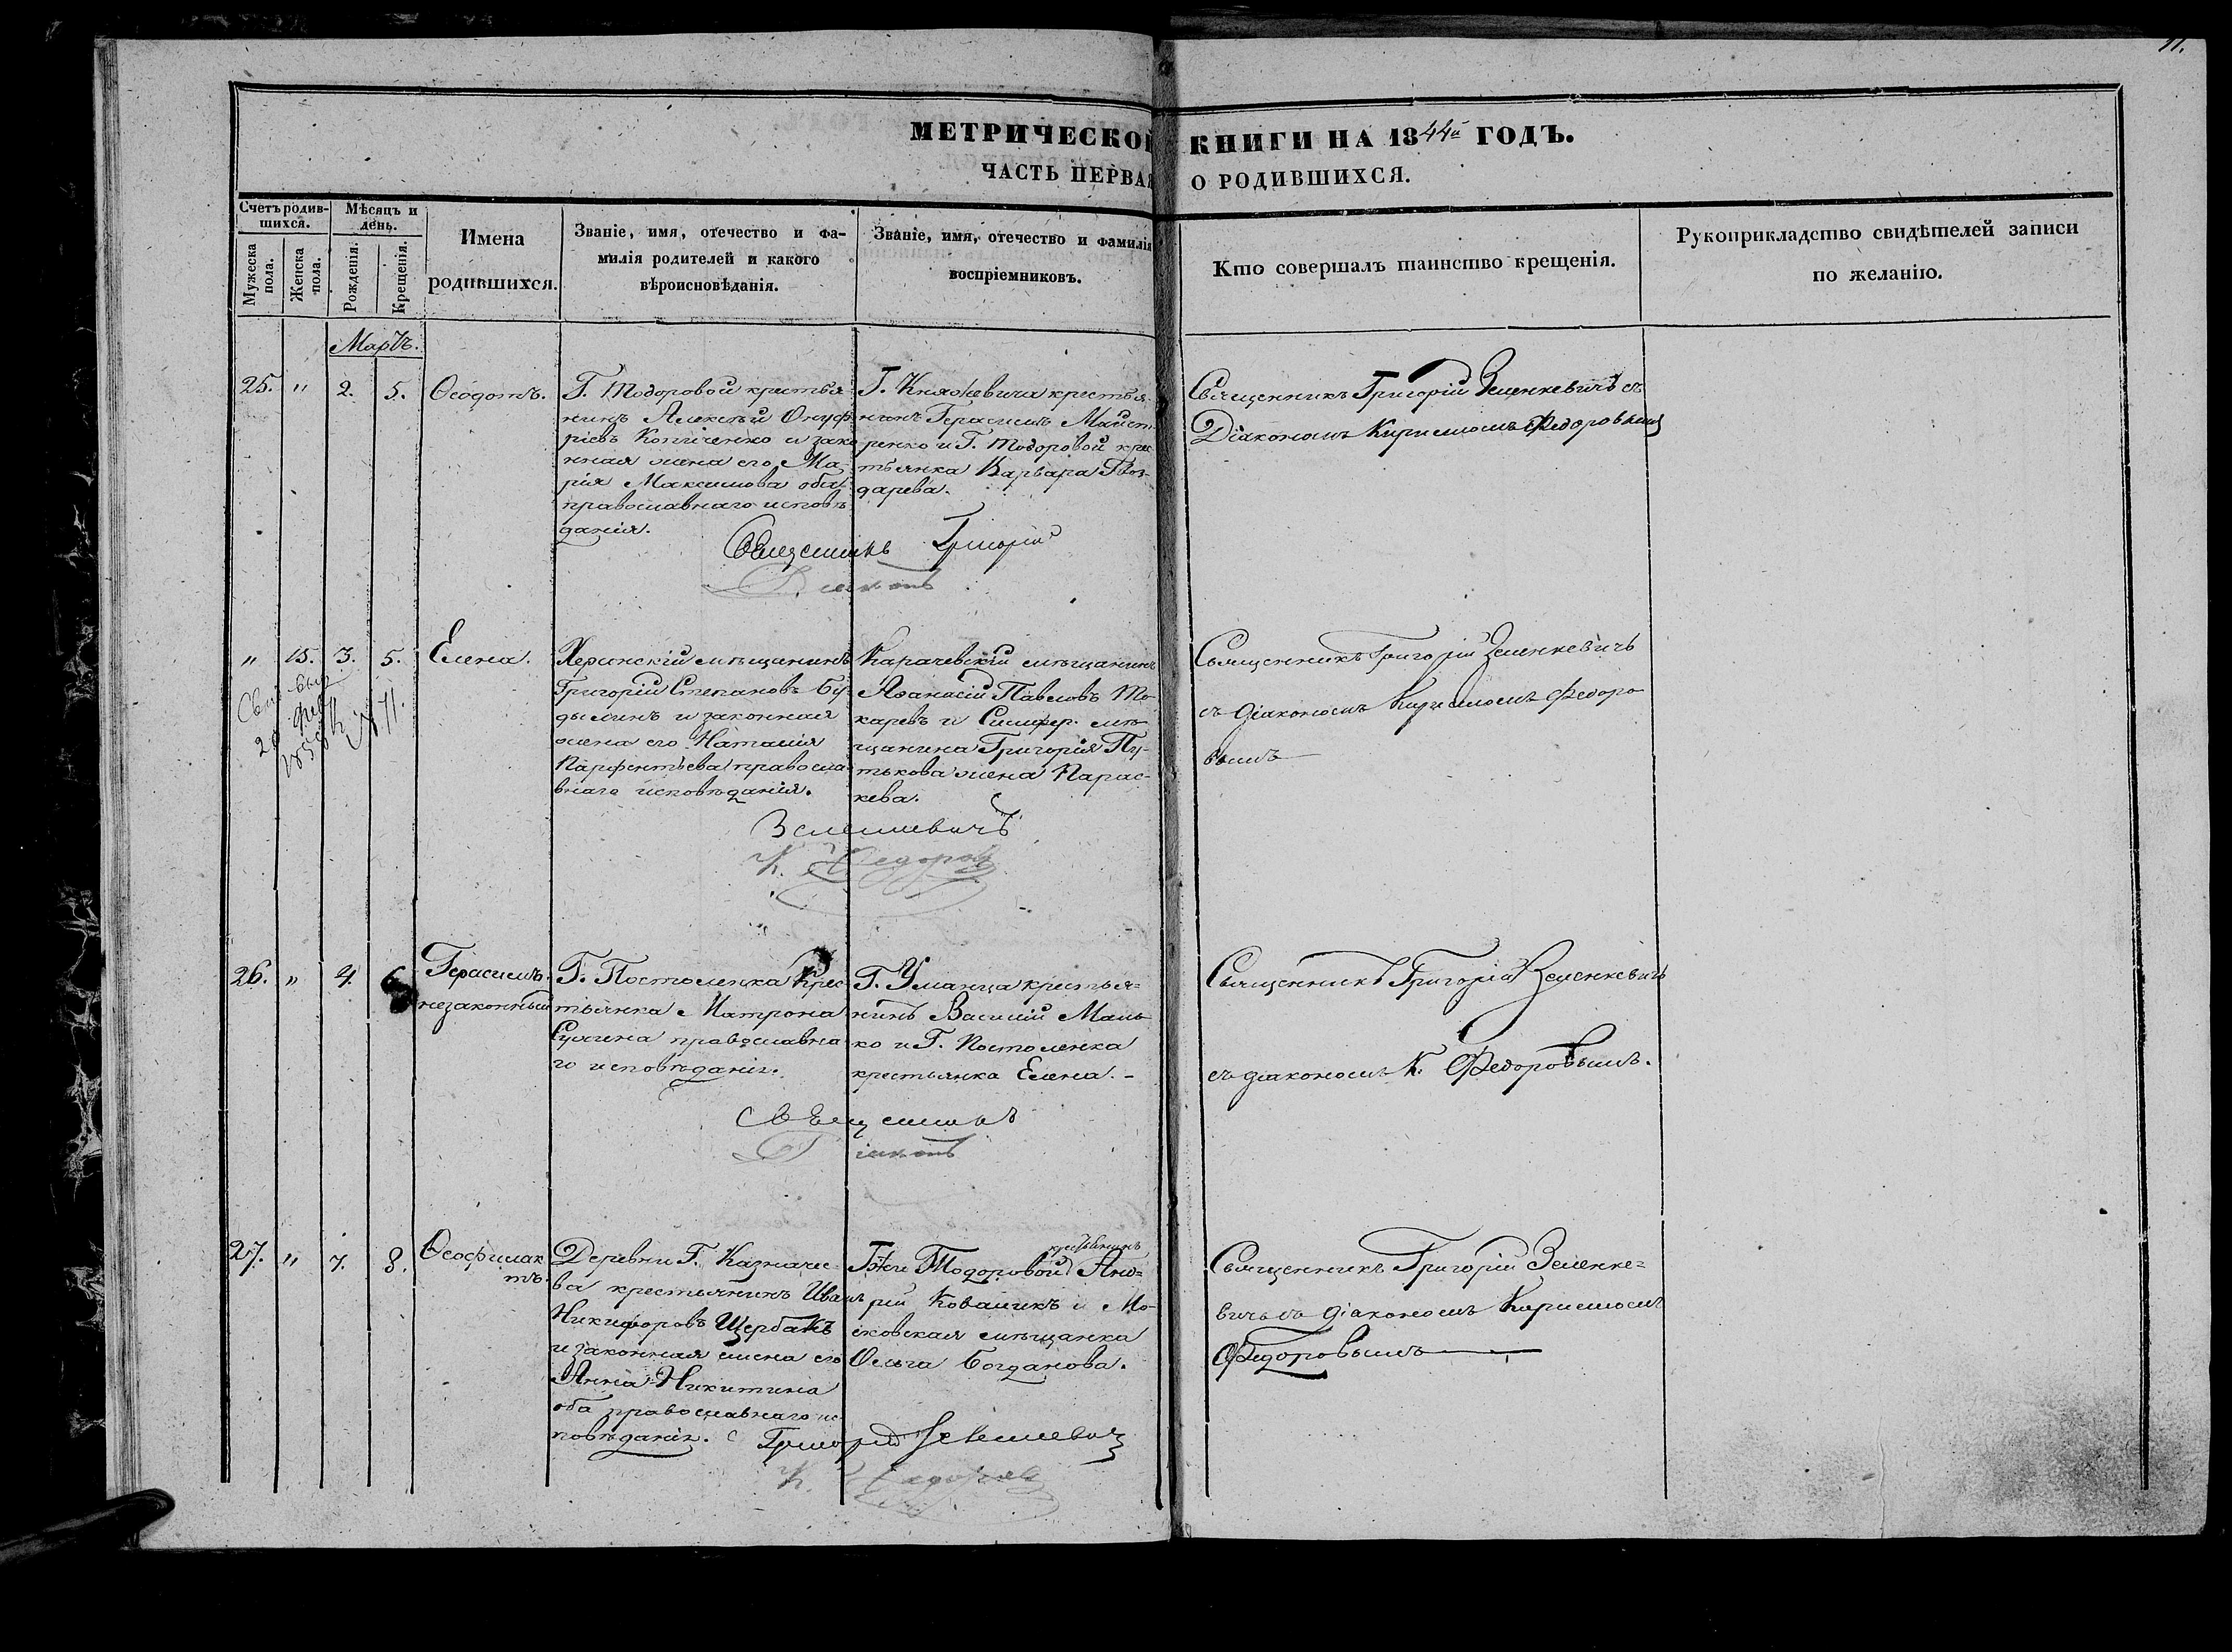 11.
МЕТРИЧЕСКОЙ КНИГИ НА 1844й ГОДЪ.
ЧАСТЬ ПЕРВАЯ О РОДИВШИХСЯ.
Счетъ родив-
шихся.
Мужеска
пола.
Женска
пола.
Мѣсяцъ и
день.
Рожденія.
Крещенія.
Имена
родившихся.
Званіе, имя, отечество и фа-
милія родителей и какого
вѣроисновѣданія.
Званіе, имя, отечество и фамилія
воспріемниковъ.
Кто совершалъ таинство крещенія.
Рукоприкладство свидѣтелей записи
по желанію.
Мартъ.
25. " 2. 5. Ѳеодотъ.
Г. Тодоровой крестья
нинъ Алексѣй Онуф
ріевъ и зако
нная жена его Ма
рія Максимова оба
православнаго исповѣ
данія.
Г. Княжевича крестья
нинъ Герасимъ
ренко и Г. Тодоровой крес
тьянка Варвара Гвоз-
дарева.
Священникъ Григорій Зеленкевичъ съ
Діакономъ Кирилломъ Федоровымъ
Священникъ Григорій
Діаконъ
" 15. 3. 5. Елена.
20 фев
1858
Херсонскій мѣщанинъ
Григорій Степановъ Бу
дылинъ и законная
жена его Наталія
Парфентьева православ
внаго исповѣданія.
Карачевскій мѣщанинъ
Аѳанасій Павловъ То
каревъ и Симфер. мѣ
щанина Григорія Пу-
тькова жена Парас-
кева.
Священникъ Григорій Зеленкевичъ
съ діакономъ Кирилломъ Федоро
вымъ
Зеленкевичъ
К. Федоровъ
26. " 4. 6 Герасимъ.
незаконный
Г. Постоленка Крес
тьянка Матрона
православна
го исповѣданія.
Г. Уманца крестья=
нинъ Василій Мань
ко и Г. Постоленка
крестьянка Елена. -
Священникъ Григорій Зеленкевичъ
съ діакономъ К. Федоровымъ.
Священникъ
Діаконъ
27. " 7. 8. Ѳеофилак
тъ.
Деревни Г. Казначее-
ва крестьянинъ Иванъ
Никифоровъ Щербакъ
и законная жена его
Анна Никитина
оба православнаго ис
повѣданія.
крестьянинъ
Гжи Тодоровой Анд=
рей Коваликъ и Мо-
сковская мѣщанка
Ольга Богданова.
Священникъ Григорій Зеленке=
вичь съ діакономъ Кирилломъ
Федоровымъ
Григорій Зеленкевичъ
К. Федоровъ